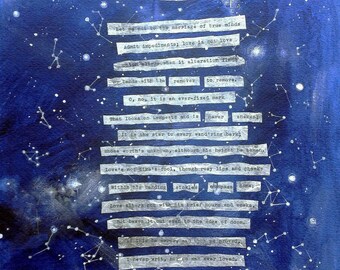 Let me not to the marriage of true minds
admit impediments; love is not love
which alters when it alteration finds
or bends with the remover to remove.
O, no, it is an ever-fixed mark
that looks on tempests and is never shaken;
it is the star to every wand'ring bark,
whose worth's unknown, although his height be taken.
Love's not Time's fool, though rosy lips and cheeks
within his bending sickle's compass come;
Love alters not with his brief hours and weeks,
But bears it out even to the edge of doom.
If this be error and upon me proved,
I never writ, nor no man ever loved.